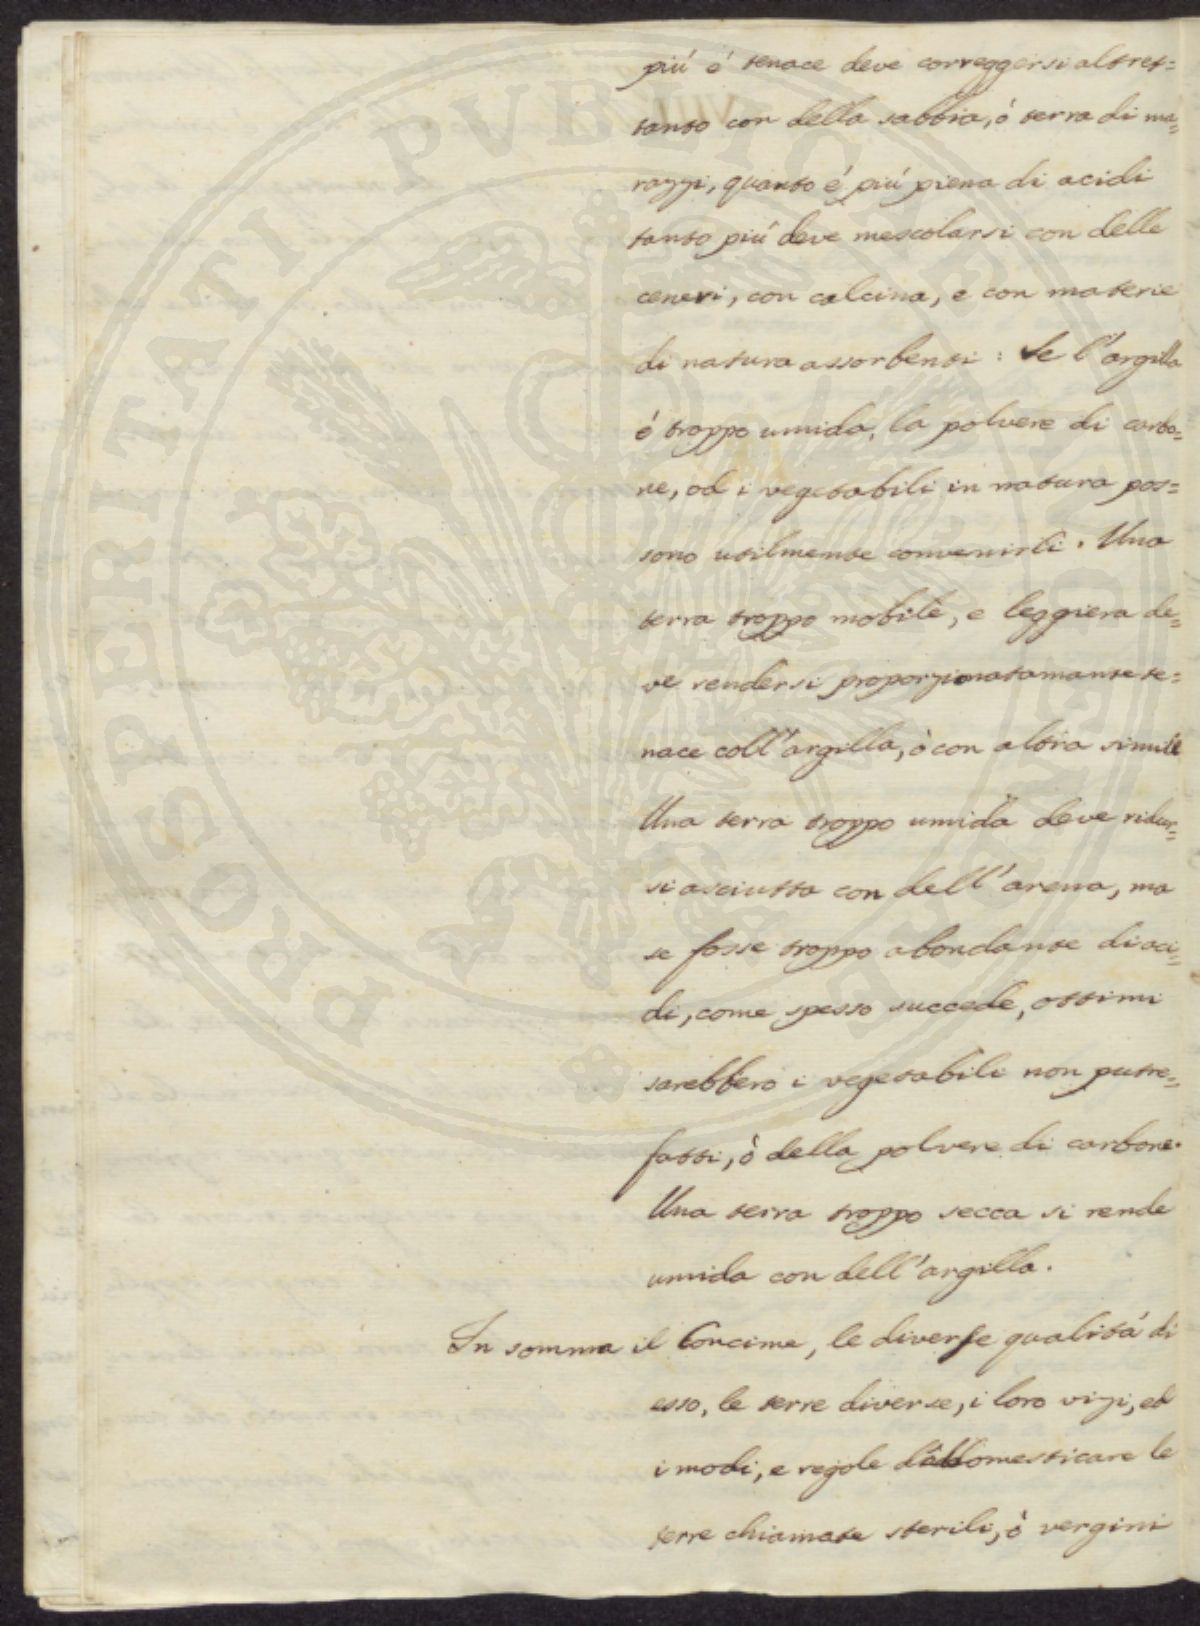 piú é tenace deve correggersi altret=
tanto con della sabbia, ò terra di ma=
razzi, quanto é piú piena di acidi
tanto piú deve mescolarsi con delle
ceneri, con calcina, e con materie
di natura assorbenti : Se l'argilla
é troppo umida, la polvere di carbo=
ne, od i vegetabili in natura pos=
sono utilmente convenirli. Una
terra troppo mobile, e leggiera de=
ve rendersi proporzionatamante te=
nace coll'argilla, ò con altra simile
Una terra troppo umida deve ridur=
si asciutta con dell'arena, ma
se fosse troppo abondante di aci=
di, come spesso succede, ottimi
sarebbero i vegetabili non putre=
fatti, ò della polvere di carbone.
Una terra troppo secca si rende
umida con dell'argilla.
In somma il Concime, le diverse qualitá di
esso, le terre diverse, i loro vizi, ed
i modi, e regole d'addomesticare le
terre chiamate sterili, ò vergini
PROSPERITATI PVBLICAE AVGENDAE